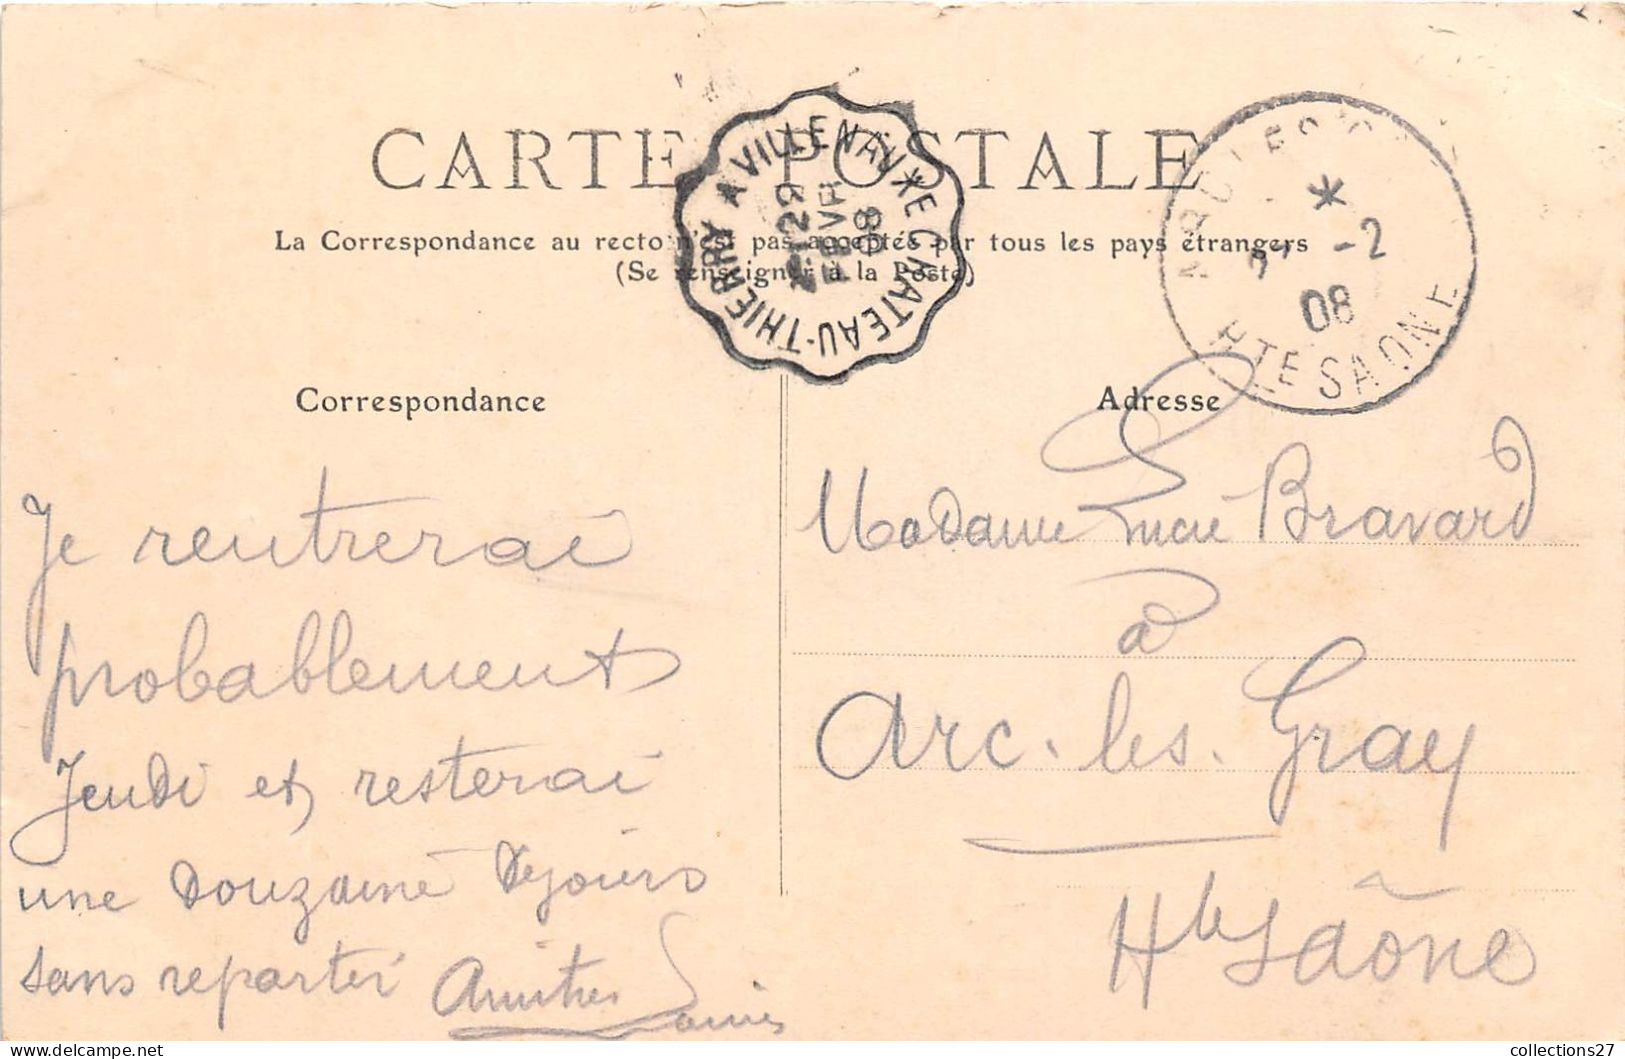 CARTE POSTALE
La Correspondance au recto n'est pas acceptée par tous les pays étrangers
(Se renseigner à la Poste)
CHATEAU-THIERRY A VILLENAUXE
29
FEVR
08
*
-2
08
HTE SAONE
Correspondance
Adresse
Je rentrerai
probablement
Jeudi et resterai
une douzaine de jours
sans repartir Amitiés
Madame Lucie Bravard
à
Arc-les-Gray
Hte Saône
collections27